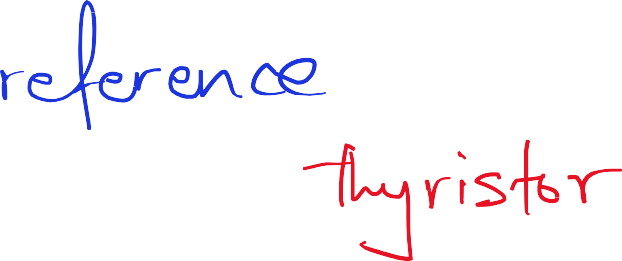 reference
thyristor